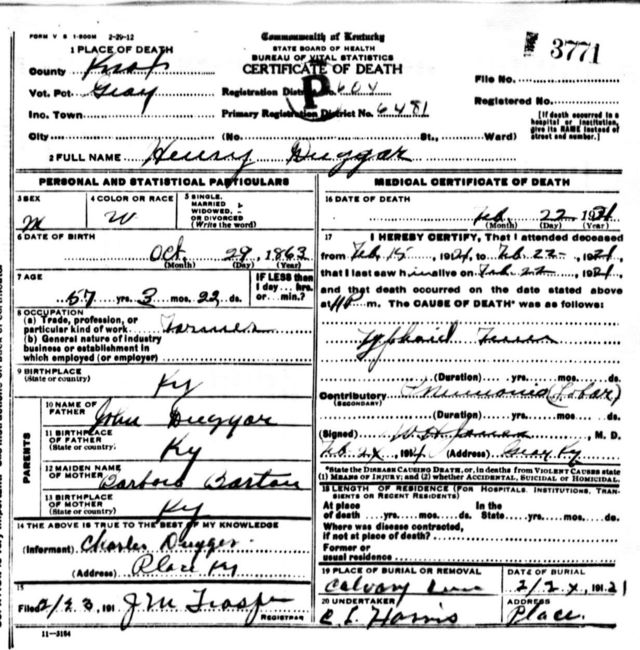 FORM V S 1-500M 2-29-12
Commonwealth of Kentucky
STATE BOARD OF HEALTH
BUREAU OF VITAL STATISTICS
CERTIFICATE OF DEATH
3771
1 PLACE OF DEATH
County Knox
Vot. Pct Gray
Inc. Town
City (No. St., Ward)
Registration District No. 604
Primary Registration District No. 6481
P
File No.
Registered No.
[If death occurred in a
hospital or institution,
give its NAME instead of
street and number.]
2 FULL NAME Henry Duggar
PERSONAL AND STATISTICAL PARTICULARS
3 SEX M
4 COLOR OR RACE W
5 SINGLE,
MARRIED
WIDOWED,
OR DIVORCED
(Write the word)
6 DATE OF BIRTH
Oct. 29, 1863
(Month) (Day) (Year)
7 AGE
57 yrs. 3 mos. 22 ds.
IF LESS than
1 day... hrs.
or... min.?
8 OCCUPATION
(a) Trade, profession, or
particular kind of work Farmer
(b) General nature of industry
business or establishment in
which employed (or employer)
9 BIRTHPLACE
(State or country) Ky
PARENTS
10 NAME OF
FATHER John Duggar
11 BIRTHPLACE
OF FATHER
(State or country) Ky
12 MAIDEN NAME
OF MOTHER Barton
13 BIRTHPLACE
OF MOTHER
(State or country) Ky
14 THE ABOVE IS TRUE TO THE BEST OF MY KNOWLEDGE
(Informant) Charles Dugger
(Address) Place Ky
15
Filed 2/23, 191 J M
REGISTRAR
11-3184
MEDICAL CERTIFICATE OF DEATH
16 DATE OF DEATH
Feb. 22 1921
(Month) (Day) (Year)
17 I HEREBY CERTIFY, That I attended deceased
from Feb 15, 1921, to Feb. 22, 1921,
that I last saw him alive on Feb 22, 1921,
and that death occurred on the date stated above
at 11 P m. The CAUSE OF DEATH* was as follows:
Typhoid Fever
(Duration) yrs. mos. ds.
Contributory Pneumonia (Lobar)
(SECONDARY)
(Duration) yrs. mos. ds.
(Signed) M. D.
191 (Address) Gray Ky
*State the DISEASE CAUSING DEATH, or, in deaths from VIOLENT CAUSES state
(1) MEANS OF INJURY; and (2) whether ACCIDENTAL, SUICIDAL or HOMICIDAL.
18 LENGTH OF RESIDENCE (FOR HOSPITALS, INSTITUTIONS, TRANSIENTS OR RECENT RESIDENTS)
At place In the
of death yrs. mos. ds. State yrs. mos. ds.
Where was disease contracted,
if not at place of death?
Former or
usual residence
19 PLACE OF BURIAL OR REMOVAL
Calvary
DATE OF BURIAL
1921
20 UNDERTAKER
Harris
ADDRESS
Place